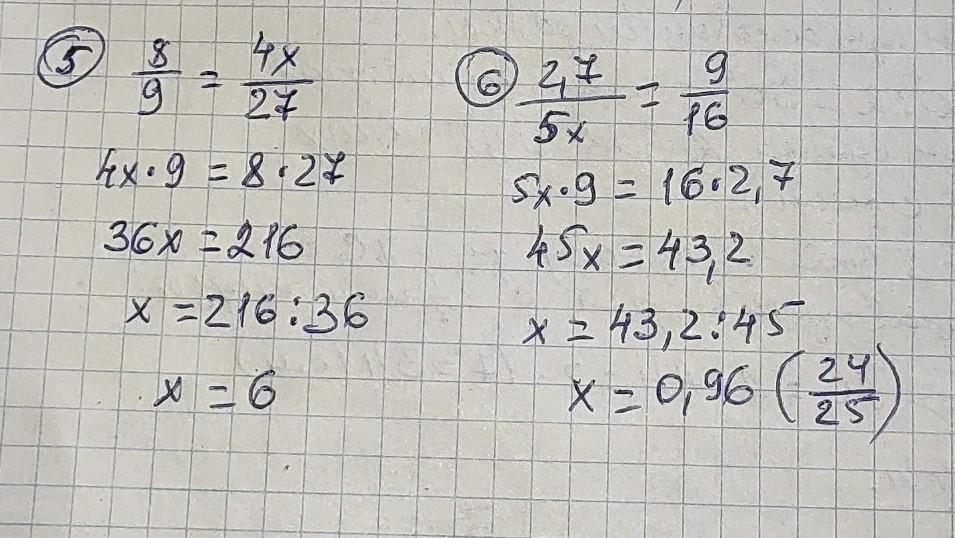 5 8/9 = 4x/27
4x·9 = 8·27
36x = 216
x = 216:36
x = 6
6 2,7/5x = 9/16
5x·9 = 16·2,7
45x = 43,2
x = 43,2:45
x = 0,96 (24/25)